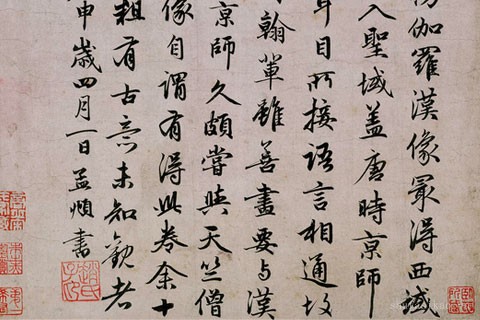 伽羅漢像最得西域
入聖域蓋唐時京師
耳目所接語言相通故
翰輩雖善畫要与漢
京師久頗嘗與天竺僧
像自謂有得此卷余十
粗有古意未知觀者
申歲四月一日孟頫書
趙氏子昂